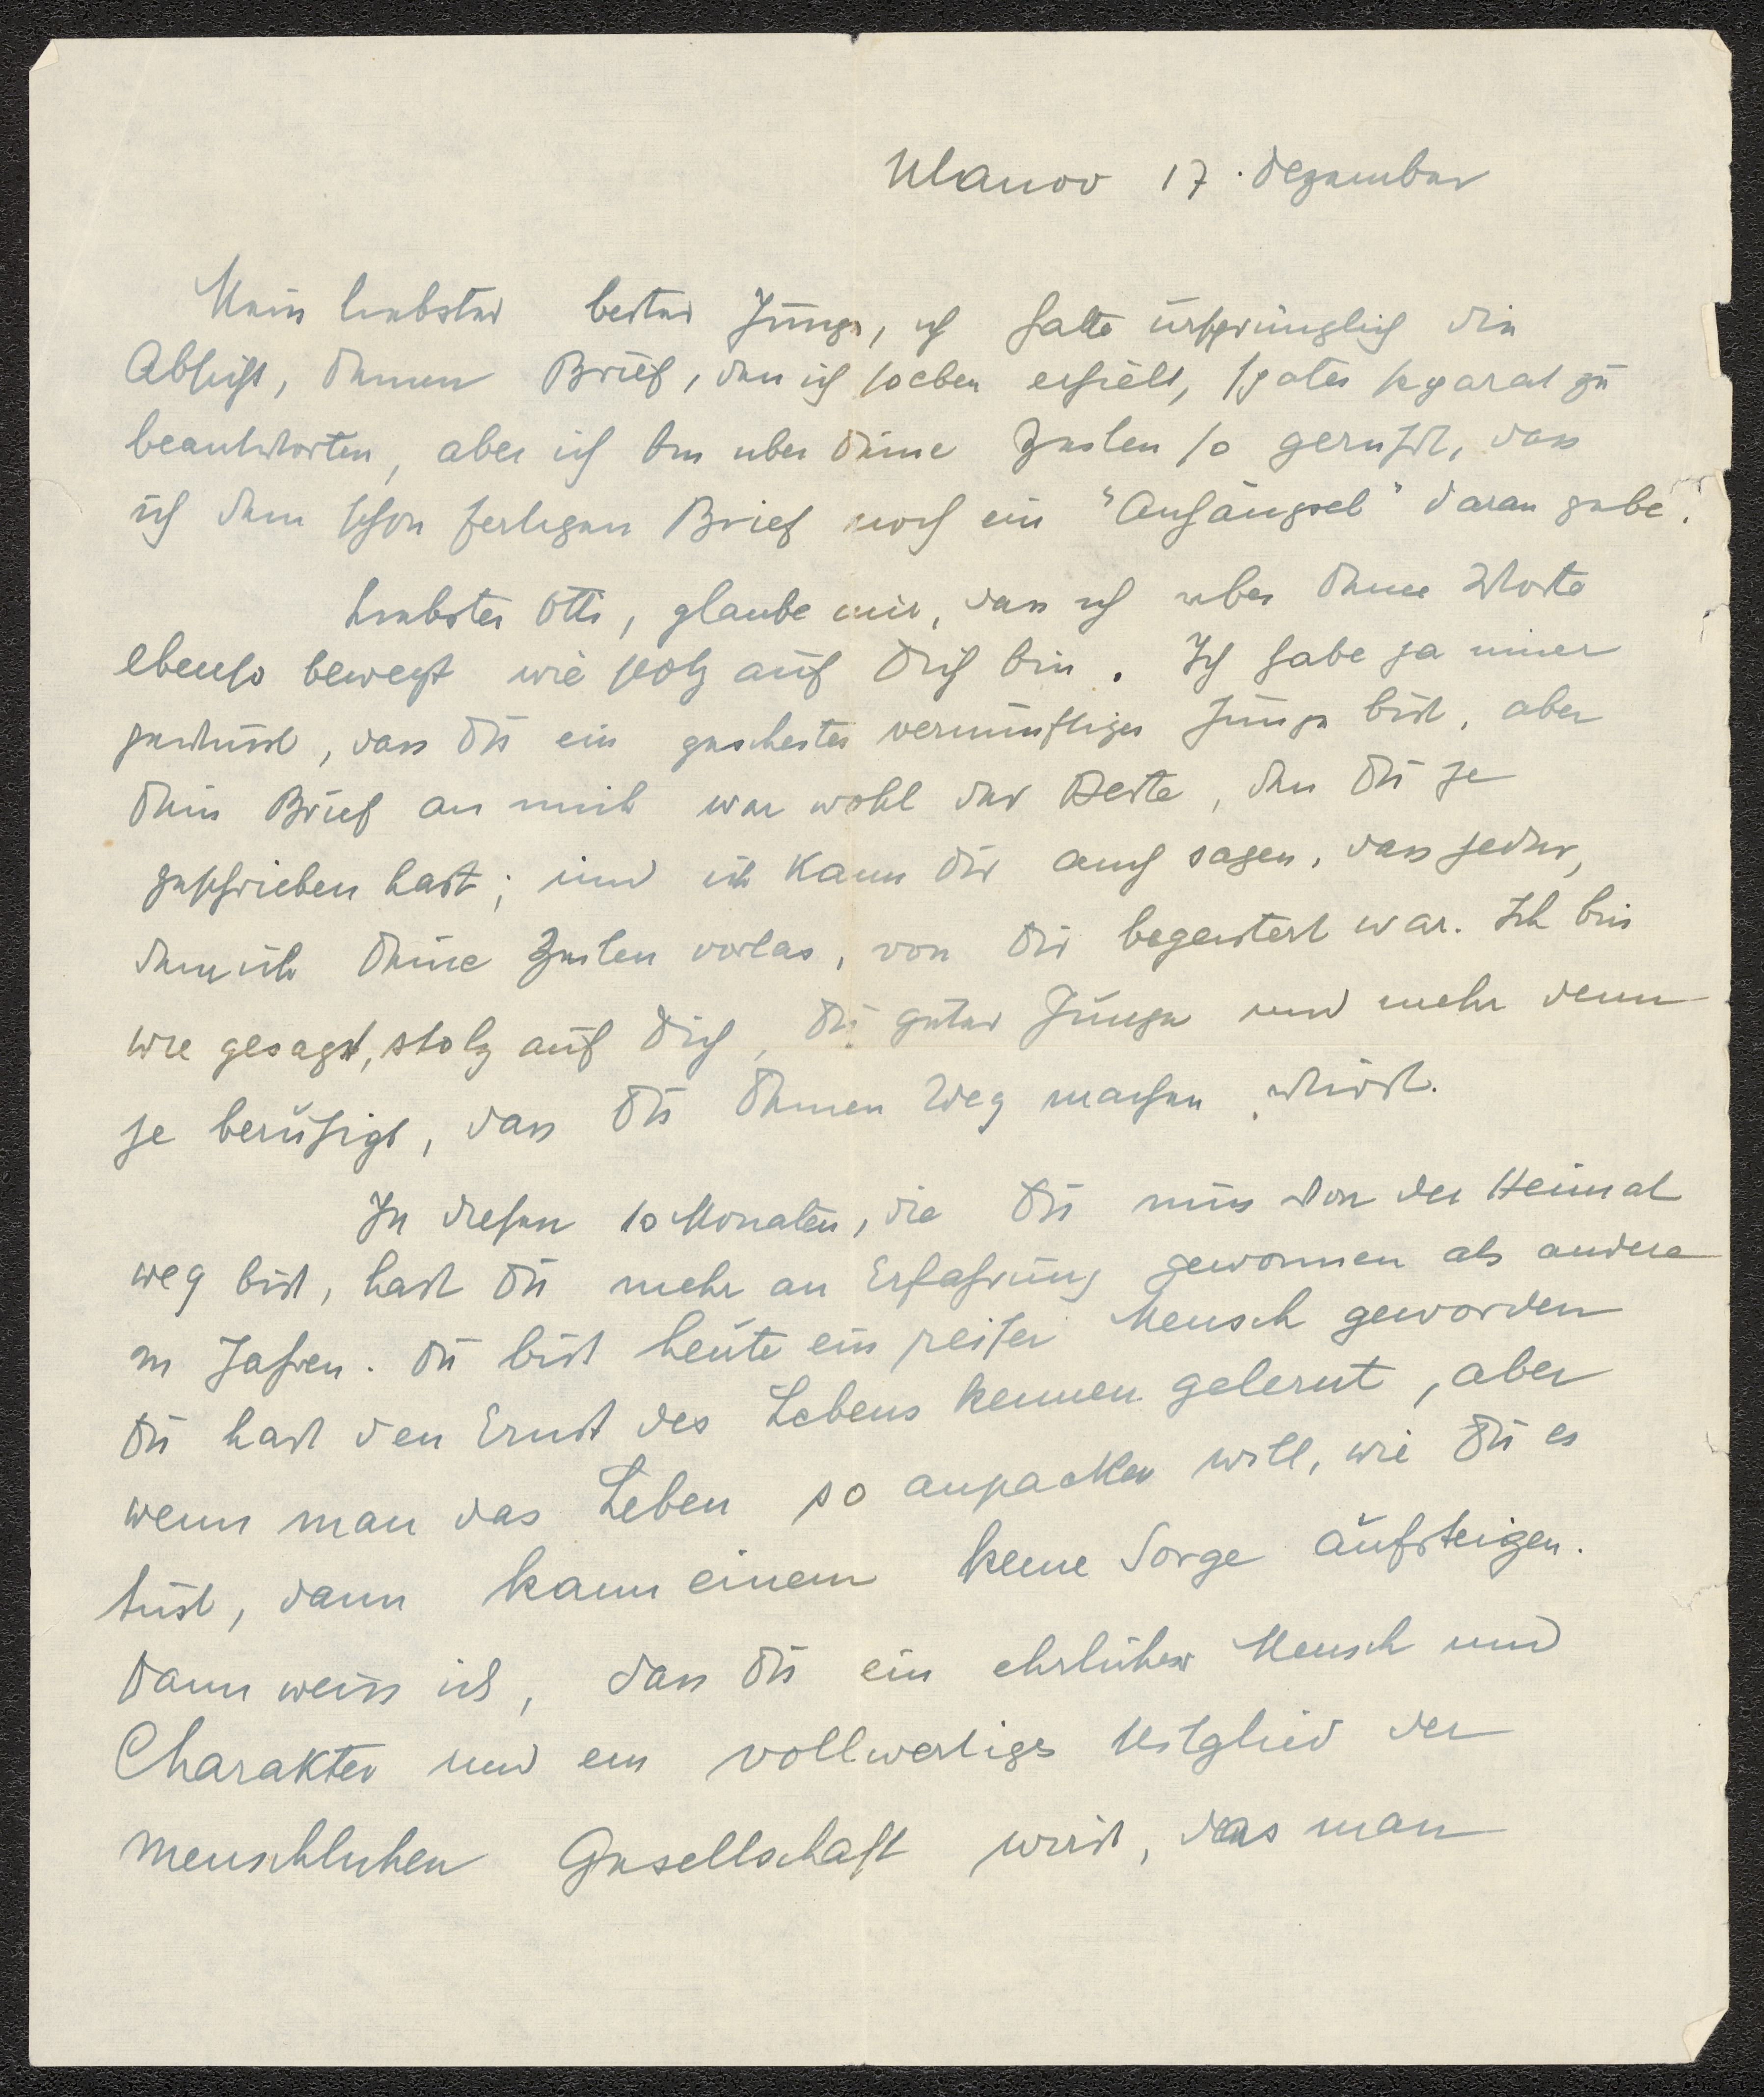 Ulanov 17. Dezember
Mein liebster bester Junge, ich hatte ursprünglich die
Absicht, Deinen Brief, den ich soeben erhielt, später separat zu
beantworten, aber ich bin über Deine Zeilen so gerührt, dass
ich dem schon fertigen Brief noch ein "Anhängsel" daran gebe.
Liebster Otti, glaube mir, dass ich über Deine Worte
ebenso bewegt wie stolz auf Dich bin. Ich habe ja immer
gewusst, dass Du ein gescheiter vernünftiger Junge bist, aber
Dein Brief an mich war wohl der Beste, den Du je
geschrieben hast; und ich kann Dir auch sagen, dass jeder,
dem ich Deine Zeilen vorlas, von Dir begeistert war. Ich bin
wie gesagt, stolz auf Dich, Du guter Junge und mehr denn
je beruhigt, dass Du Deinen Weg machen wirst.
In diesen 10 Monaten, die Du nun von der Heimat
weg bist, hast Du mehr an Erfahrung gewonnen als andere
in Jahren. Du bist heute ein reifer Mensch geworden
Du hast den Ernst des Lebens kennen gelernt, aber
wenn man das Leben so anpacken will, wie Du es
tust, dann kann einem keine Sorge aufsteigen.
Dann weiss ich, dass Du ein ehrlicher Mensch und
Charakter und ein vollwertiges Mitglied der
menschlichen Gesellschaft wirst, das man